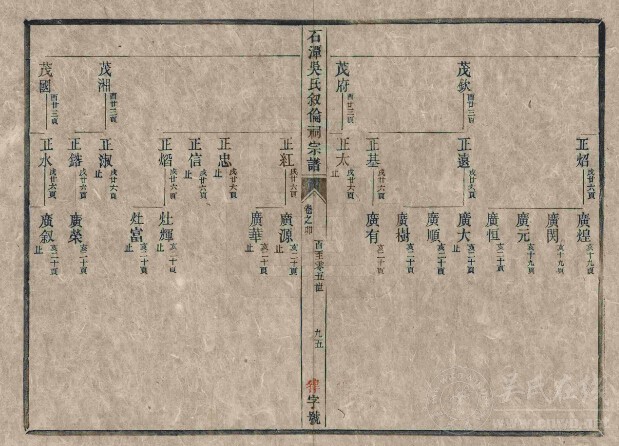 茂欽 酉廿三頁
茂府 酉廿三頁
正炤 戌廿六頁
正遠 戌廿六頁
正基 戌廿六頁
正太 戌廿六頁 止
廣煌 亥十九頁 止
廣閔 亥十九頁
廣元 亥十九頁
廣恒 亥二十頁
廣大 亥二十頁 止
廣順 亥二十頁
廣樹 亥二十頁
廣有 亥二十頁
石潭吳氏叙倫祠宗譜
卷之卯
百至零五世
九五
字號
茂湘 酉廿三頁
茂國 酉廿三頁
正紅 戌廿六頁
正忠 戌廿六頁 止
正信 戌廿六頁 止
正熖 戌廿六頁
正淑 戌廿六頁 止
正鎔 戌廿六頁
正水 戌廿六頁
廣源 亥二十頁 止
廣華 亥二十頁 止
灶輝 亥二十頁 止
灶富 亥二十頁 止
廣榮 亥二十頁
廣叙 亥二十頁 止